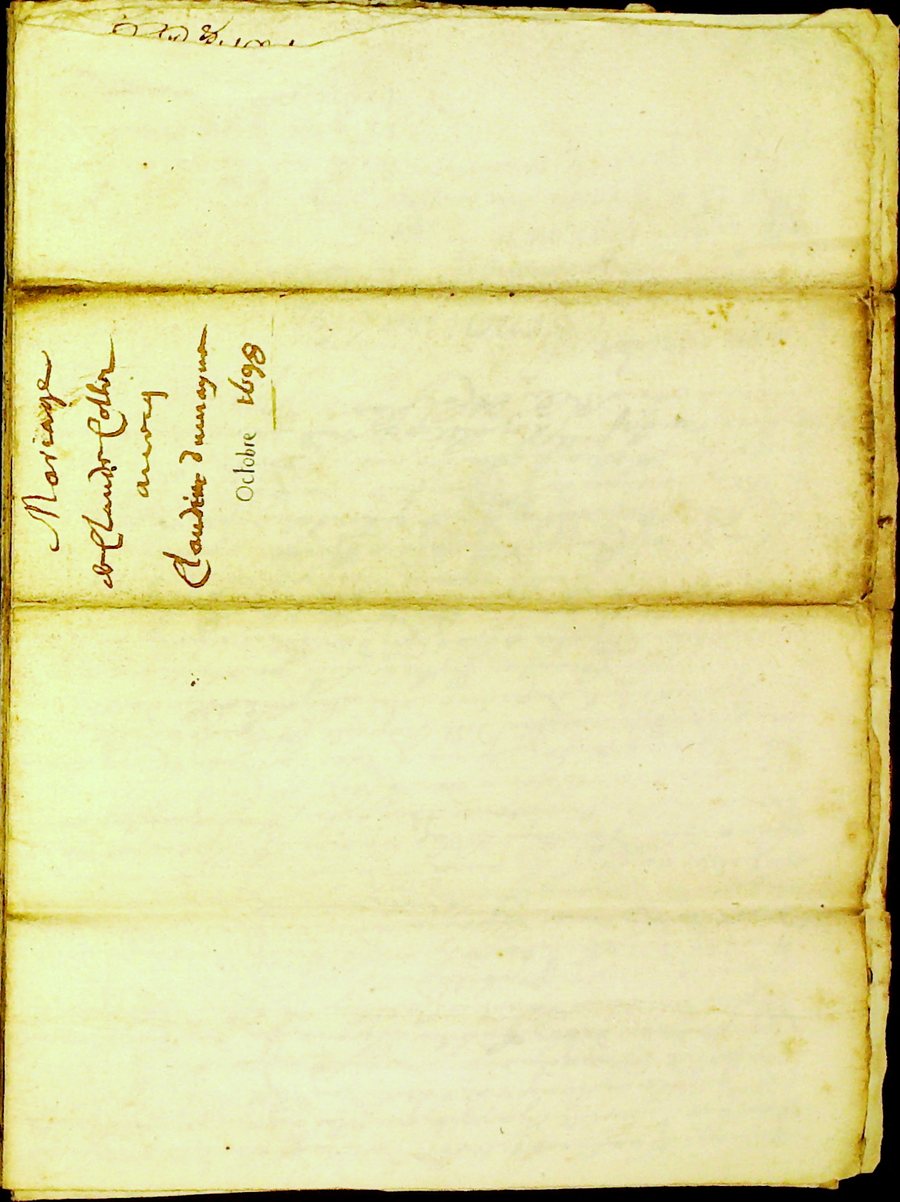 Mariage
de Claude Collon
avecq
Claudine dumayne
Octobre 1698